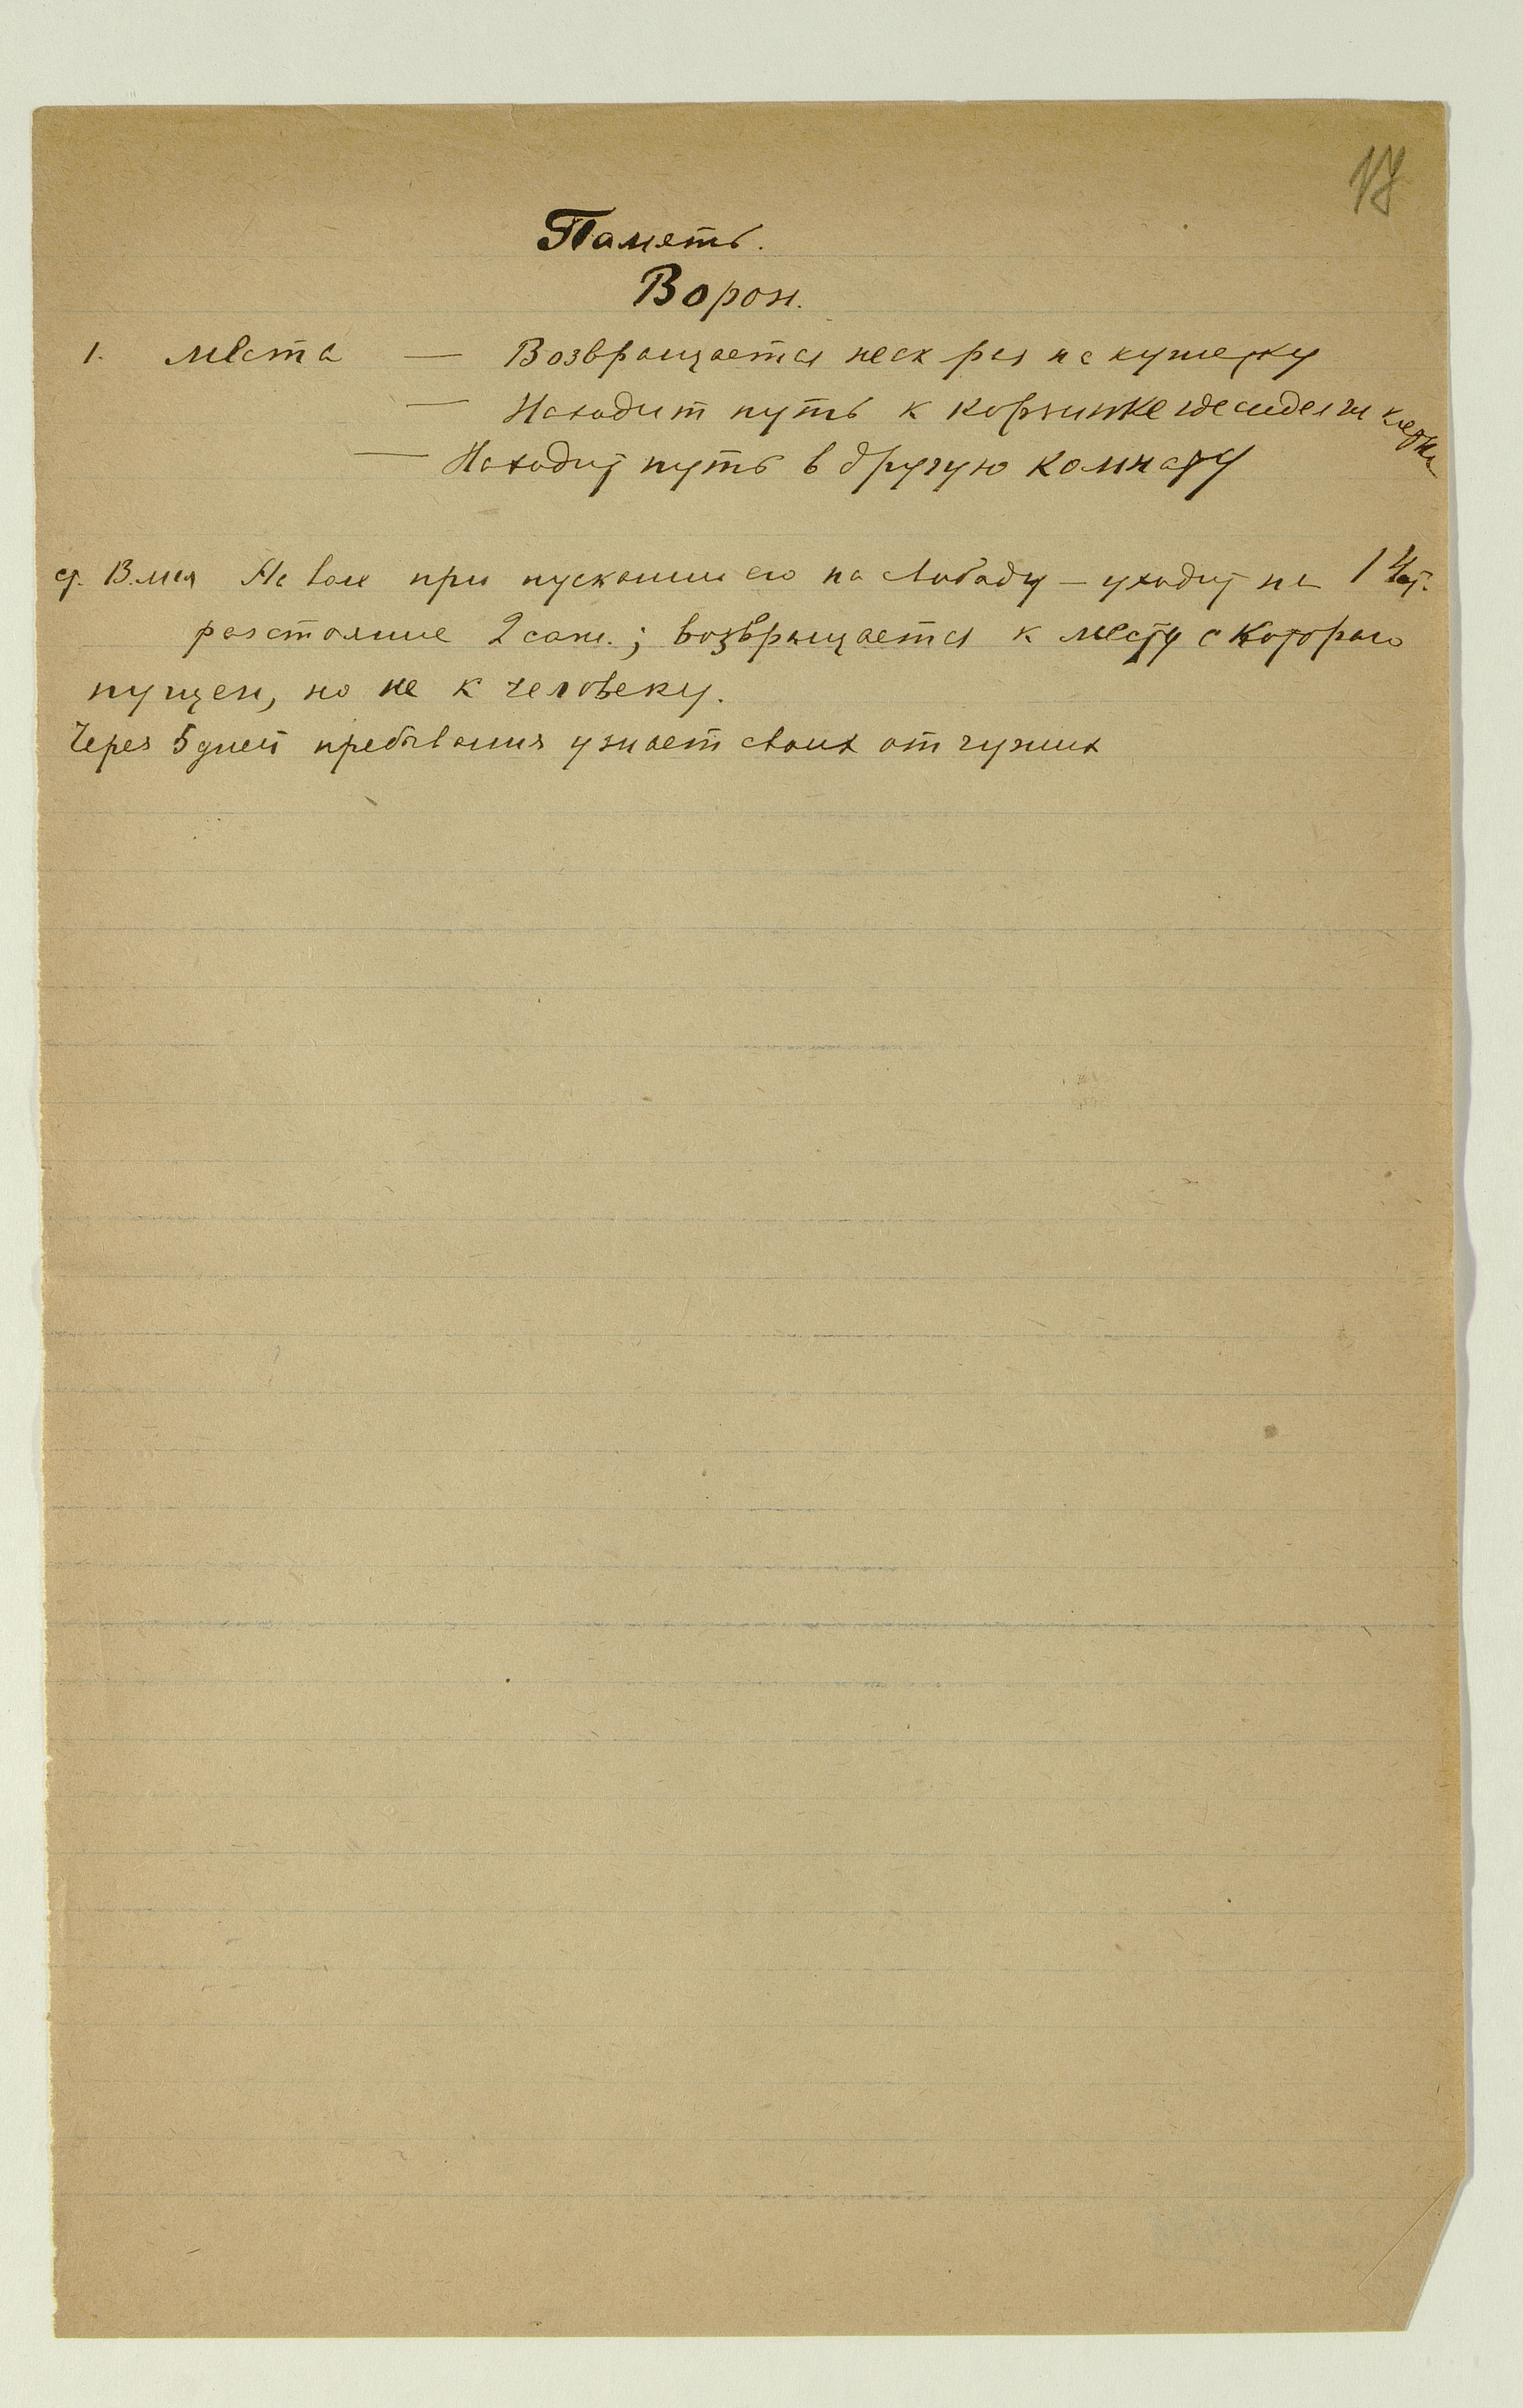 17
Память.
Ворон.
1. места — Возвращается неск раз на кушетку
— Находит путь к корзинке где сидели
— Находит путь в другую комнату
13. мая На воле при пускании его на свободу — уходит на 1
расстояние 2 саж.; возвращается к месту с котораго
пущен, но не к человеку.
Через 5 дней пребывания узнает своих от чужих